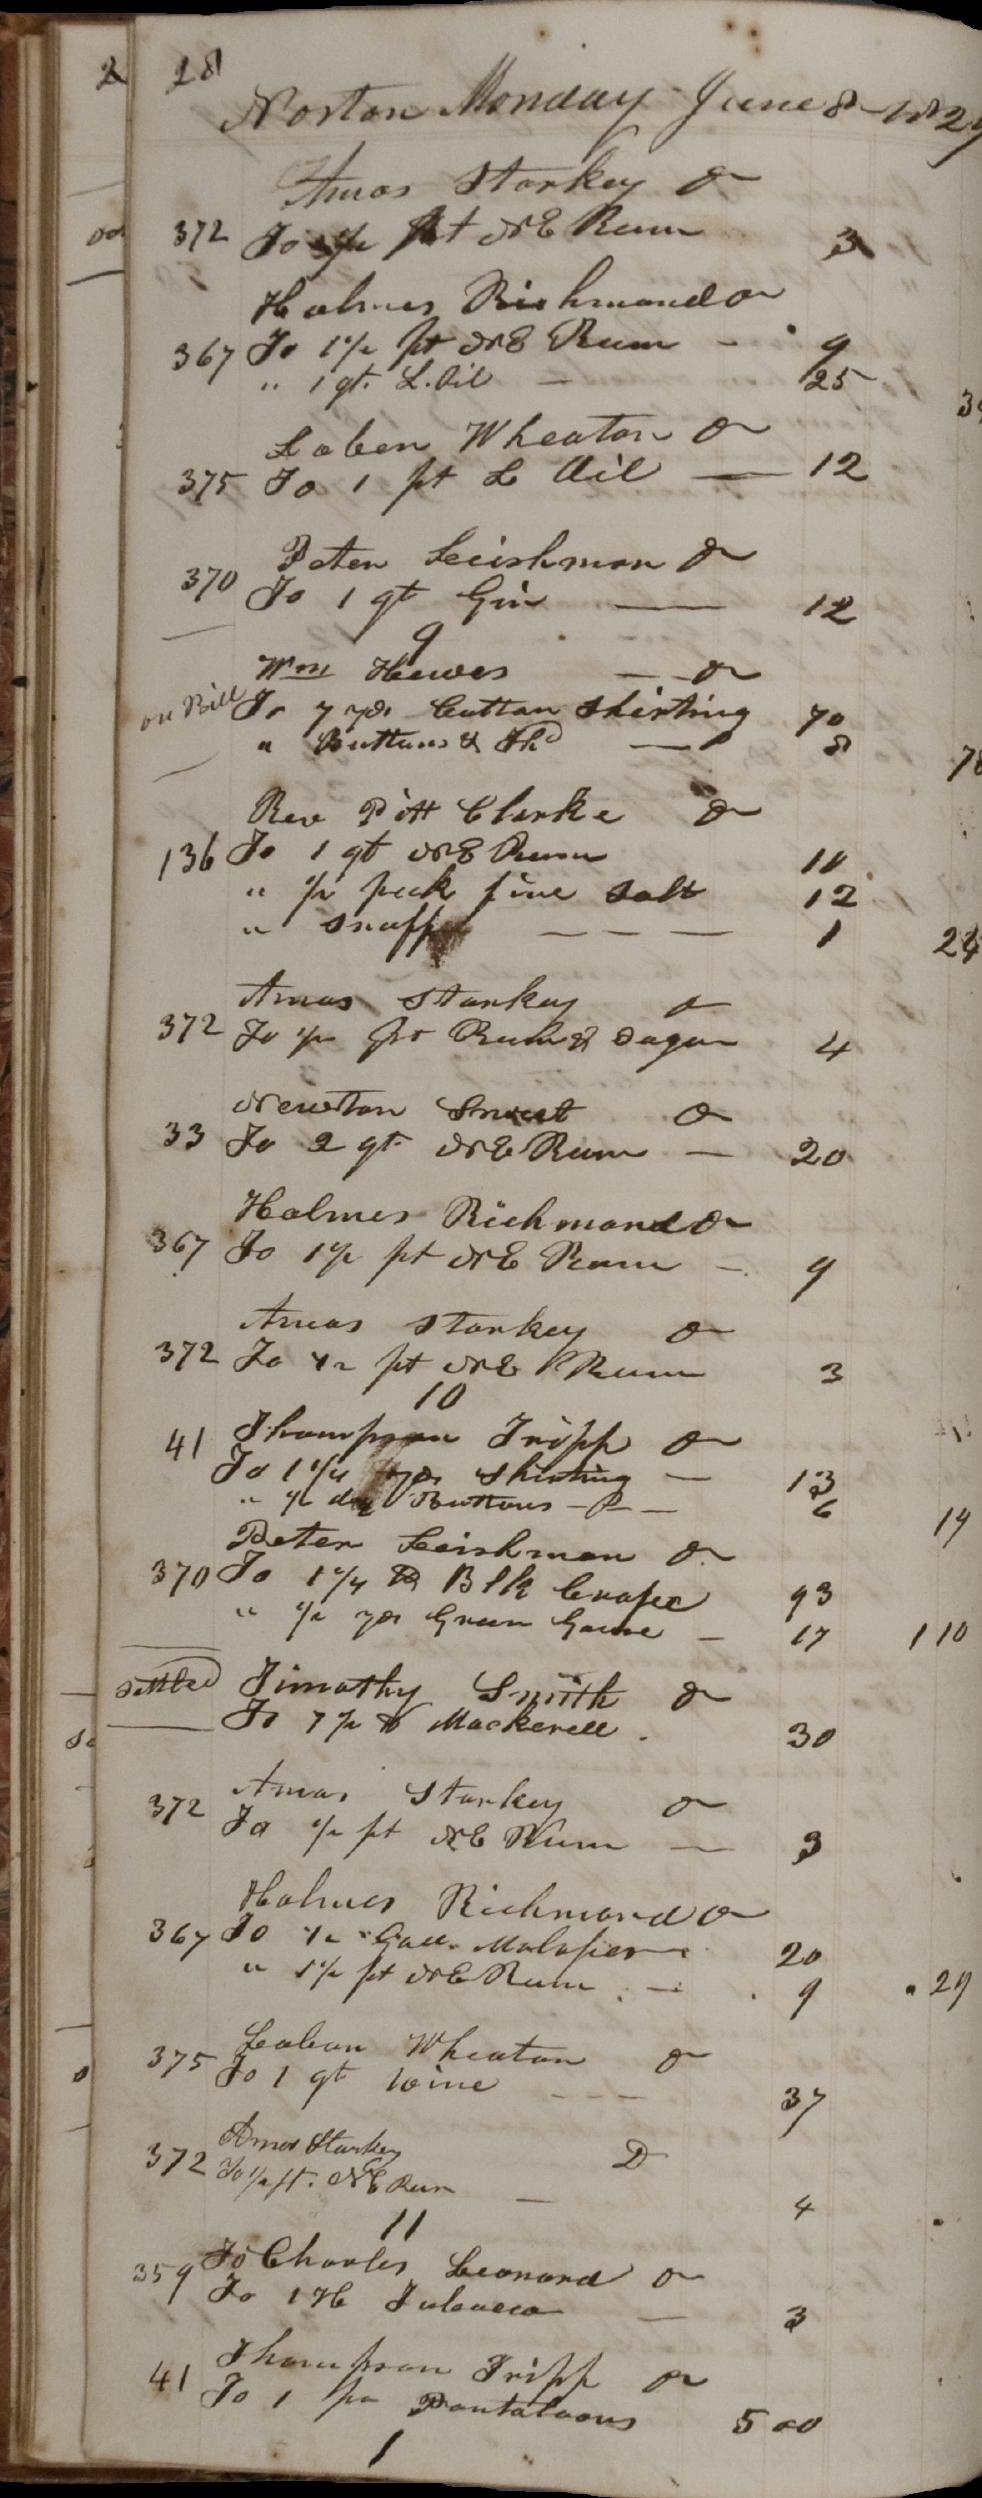 28
Norton Monday June 8 - 1829
Amos Starkey Dr
372 To 1/2 pt NE Rum 3
Holmes Richmond Dr
367 To 1 1/2 pt NE Rum - 9
" 1 qt. L. Oil - 25 34
Laben Wheaton Dr
375 To 1 pt L Oil — 12
Peter Leishman Dr
370 To 1 qt Gin — 12
9
Wm Hewes — Dr
on Bill To 7 yds Cottan Shirting 70
" Buttons & Thd — 8 78
Rev Pitt Clarke Dr
136 To 1 qt NE Rum 11
" 1/2 peck fine Salt 12
" Snuff — — — 1 24
Amos Starkey Dr
372 To 1/2 pt Rum & Sugar 4
Newton Sweet Dr
33 To 2 qt NE Rum — 20
Holmes Richmond Dr
367 To 1 1/2 pt NE Rum — 9
Amos Starkey Dr
372 To 1/2 pt NE Rum 3
10
41 Thompson Tripp Dr
To 1 1/4 yds Shirting — 13
" 1/2 dz Buttons — 6 19
Peter Leishman Dr
370 To 1 1/4 Blk Crape 93
" 1/2 yds Green Gauze — 17 110
Settled Timothy Smith Dr
To 7 1/2 lb Mackerell . 30
Amos Starkey Dr
372 To 1/2 pt NE Rum — 3
Holmes Richmond Dr
367 To 1/2 Gall. Molasses 20
" 1 1/2 pt NE Rum — 9 29
Laban Wheaton Dr
375 To 1 qt Wine - - - 37
Amos Starkey D
372 To 1/2 pt. NE Rum — 4
11
359 To Charles Leonard Dr
To 1 H Tobacco — 3
41 Thompson Tripp Dr
To 1 pr Pantaloons 5 00
1